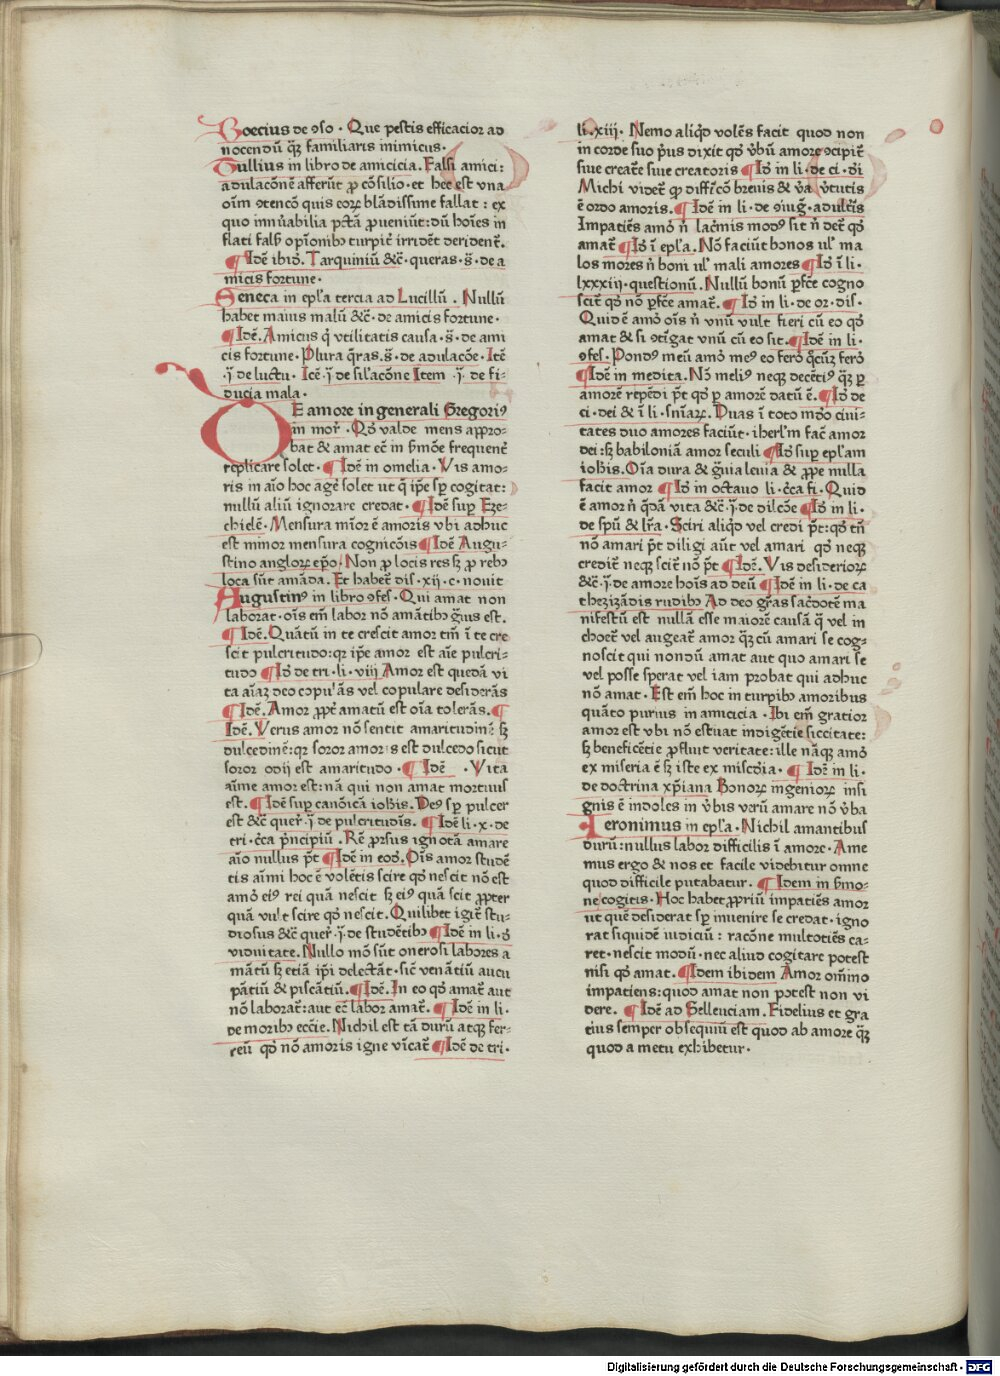 Boecius de ꝯso · Que pestis efficacior ad
nocendū q̄ꝫ familiaris inimicus ·
Tullius in libro de amicicia . Falsi amici :
adulacōnē afferūt ꝓ cōsilio · et hec est vna
oīm ꝯtencō quis eoꝝ blādissime fallat : ex
quo innūabilia pctā ꝓueniūt : dū hoīes in
flati falsꝭ opīonibꝰ turpiť irridēt deridenť .
¶ Idē ibiđ . Tarquiniū &c̄ · queras · s̄ · de a
micis fortune ·
Seneca in epl̄a tercia ad Lucillū . Nullū
habet maius malū &c̄ · de amicis fortune ·
¶ Idē . Amicus q̄ vtilitatis causa · s̄ · de ami
cis fortune · Plura q̄ras . s̄ · de adulacōe · Itē
· ī · de luctu . Itē · ī · de sil'acōne Item · ī · de fi-
ducia mala ·
DE amore in generali Gregoriꝰ
in moť · Qđ valde mens appro-
bat & amat ec̄ in s̄mōe frequenť
replicare solet · ¶ Idē in omelia · Vis amo-
ris in aīo hoc ageť solet ut q̄ ip̄e sp̄ cogitat :
nullū aliū ignorare credat · ¶ Idē sup̄ Eze-
chielē · Mensura mīor ē amoris vbi adhuc
est minor mensura cognicōis ¶ Idē Augu-
stino angloꝝ ep̄o . Non ꝓ locis res sꝫ ꝓ rebꝰ
loca sūt amāda . Et habeť dis · xij · c · nouit
Augustinꝰ in libro ꝯfes · Qui amat non
laborat · oīs em̄ labor nō amātibꝰ ḡuis est .
¶ Idē . Quātū in te crescit amor tm̄ ī te cre
scit pulcritudo : qꝛ ip̄e amor est aīe pulcri-
tudo ¶ Iđ de tri · li · viij Amor est quedā vi
ta aīaꝫ deo copul'ās vel copulare desiderās
¶ Idē . Amor ꝓpť amatū est oīa tolerās . ¶
Idē . Verus amor nō sentit amaritudinē sꝫ
dulcedinē : qꝛ soror amoris est dulcedo sicut
soror odij est amaritudo · ¶ Idē · Vita
aīme amor est : nā qui non amat mortuus
est . ¶ Idē sup̄ canōicā ioħis . Deꝰ sp̄ pulcer
est &c̄ queť · ī · de pulcritudīs . ¶ Idē li · x · de
tri · c̄ca p̄ncipiū . Rē ꝓrsus ignotā amare
aīo nullus p̄t ¶ Idē in eođ . Oīs amor studē
tis aīmi hoc ē volētis scire qđ nescit nō est
amor eiꝰ rei quā nescit sꝫ eiꝰ quā scit ꝓpter
quā vult scire qđ nescit . Quilibet igiť stu-
diosus &c̄ queť · ī · de studētibꝰ ¶ Idē in li · đ
viduitate . Nullo mō sūt onerosi labores a
mātū sꝫ etiā ip̄i delectāt · sic̄ venātiū aucu
pātiū & piscātiū . ¶ Idē . In eo qđ amať aut
nō laborať : aut ec̄ labor amať . ¶ Idē in li .
de moribꝰ ecc̄ie . Nichil est tā durū atqꝫ fer-
reū qđ nō amoris igne vīcať ¶ Idē de tri .
li · xiij · Nemo aliqđ volēs facit quod non
in corde suo p̄us dixit qđ v̄bū amore ꝯcipiť
siue creatē siue creatoris ¶ Iđ in li · de ci · d̄i
Michi videť ꝙ diffīcō breuis & v̄a v̄tutis
ē ordo amoris . ¶ Idē in li · de ꝯiug̃ · adultīs
Impatiēs amoꝛ n̄ lac̄mis modꝰ sit n̄ deť qđ
amať ¶ Iđ ī epl̄a . Nō faciūt bonos ul' ma
los mores n̄ boni ul' mali amores ¶ Iđ ī li .
lxxxiij · questionū . Nullū bonū ꝑfc̄e cogno
sciť qđ nō ꝑfc̄e amať . ¶ Iđ in li · de oꝛ · dis ·
Quid ē amoꝛ oīs n̄ vnū vult fieri cū eo qđ
amat & si ꝯtigat vnū cū eo sit . ¶ Idē in li .
ꝯfes . Pondꝰ meū amoꝛ meꝰ eo feroꝛ q̄cūꝫ feroꝛ
¶ Idē in medita . Nō meliꝰ neqꝫ decētiꝰ q̄ꝫ ꝑ
amorē repēdi p̄t qđ ꝑ amorē datū ē . ¶ Iđ de
ci · dei & ī li · sn̄iaꝝ . Duas ī toto mđo ciui-
tates duo amores faciūt · iherl'm fac̄ amor
dei : sꝫ babiloniā amor seculi ¶ Iđ sup̄ epl̄am
ioħis . Oīa dura & ḡuia leuia & ꝓpe nulla
facit amor ¶ Iđ in octauo li · c̄ca fi . Quid
ē amor n̄ q̄dā vita &c̄ · ī · de dilcōe ¶ Iđ in li .
de sp̄u & lr̄a . Sciri aliqđ vel credi p̄t : qđ tn̄
nō amari p̄t diligi aūt vel amari qđ neqꝫ
crediť neqꝫ sciť nō p̄t ¶ Idē . Vis desiderioꝝ
&c̄ · ī · de amore hoīs ad deū ¶ Idē in li · de ca
thezizādis rudibꝰ Ad deo grās sac̄dotē ma
nifestū est nullā esse maiorē causā q̄ vel in
choeť vel augeať amor q̄ꝫ cū amari se cog-
noscit qui nondū amat aut quo amari se
vel posse sperat vel iam probat qui adhuc
nō amat · Est em̄ hoc in turpibꝰ amoribus
quāto purius in amicicia · Ibi em̄ gratior
amor est vbi nō estuat indigētie siccitate :
sꝫ beneficētie ꝓfluit veritate : ille nāqꝫ amoꝛ
ex miseria ē sꝫ iste ex misc̄dia · ¶ Idē in li .
de doctrina xp̄iana Bonoꝝ ingenioꝝ insi
gnis ē indoles in v̄bis verū amare nō v̄ba
Ieronimus in epl̄a . Nichil amantibus
durū : nullus labor difficilis ī amore · Ame
mus ergo & nos et facile videbitur omne
quod difficile putabatur . ¶ Idem in s̄mo-
ne cogitis · Hoc habet ꝓpriū impatiēs amor
ut quē desiderat sp̄ inuenire se credat · igno
rat siquidē iudiciū : racōne multociēs ca-
ret · nescit modū · nec aliud cogitare potest
nisi qđ amat . ¶ Idem ibidem Amor om̄ino
impatiens : quod amat non potest non vi
dere . ¶ Idē ad Selleuciam . Fidelius et gra
tius semper obsequiū est quod ab amore q̄ꝫ
quod a metu exhibetur ·
Digitalisierung gefördert durch die Deutsche Forschungsgemeinschaft · DFG